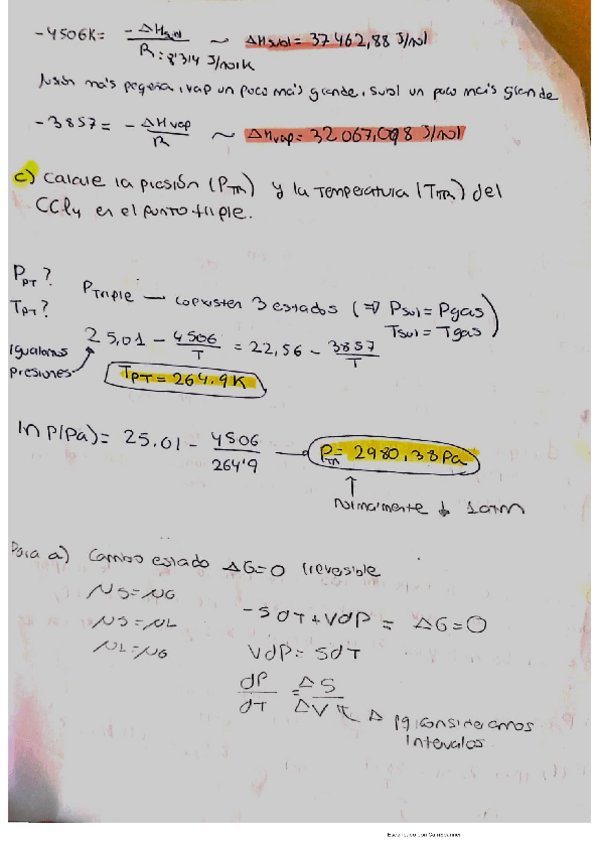 -4506K = -ΔHsub / R = 8'314 J/molK ~ ΔHsubl = 37462,88 J/mol
más pequeña, vap un poco más grande, subl un poco más grande
-3857 = -ΔHvap / R ~ ΔHvap = 32067,098 J/mol
c) Calcule la presión (PTR) y la temperatura (TTR) del
CCl4 en el punto triple.
PPT?
TPT?
PTriple — coexisten 3 estados (⇒ Psol = Pgas
Tsol = Tgas)
25,01 - 4506/T = 22,56 - 3857/T
igualamos
presiones
TPT = 264.9K
ln P(Pa) = 25.01 - 4506/264'9 → PTR = 2980,38 Pa
↑
Normalmente ↓ 1atm
Para a) Cambio estado ΔG=0 (reversible
μS=μG
μS=μL
μL=μG
-SdT+VdP = ΔG=0
VdP = SdT
dP/dT = ΔS/ΔV ↖ Δ pq consideramos
intervalos